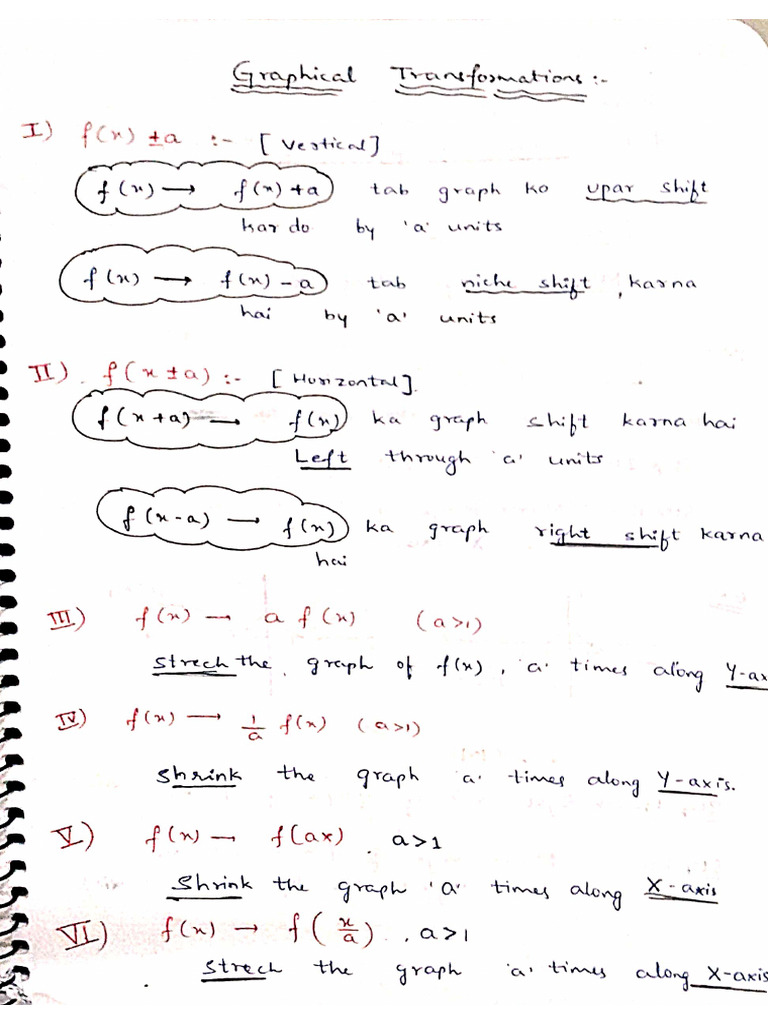 Graphical Transformations :-
I) f(x) ± a :- [Vertical]
f(x) → f(x) + a tab graph ko upar shift
kar do by 'a' units
f(x) → f(x) - a tab niche shift karna
hai by 'a' units
II) f(x ± a) :- [Horizontal].
f(x+a) → f(x) ka graph shift karna hai
Left through 'a' units
f(x-a) → f(x) ka graph right shift karna
hai
III) f(x) → a f(x) (a>1)
Strech the graph of f(x), 'a' times along Y-ax
IV) f(x) → 1/a f(x) (a>1)
Shrink the graph 'a' times along Y-axis.
V) f(x) → f(ax) , a>1
Shrink the graph 'a' times along X-axis
VI) f(x) → f(x/a) , a>1
Strech the graph 'a' times along X-axis